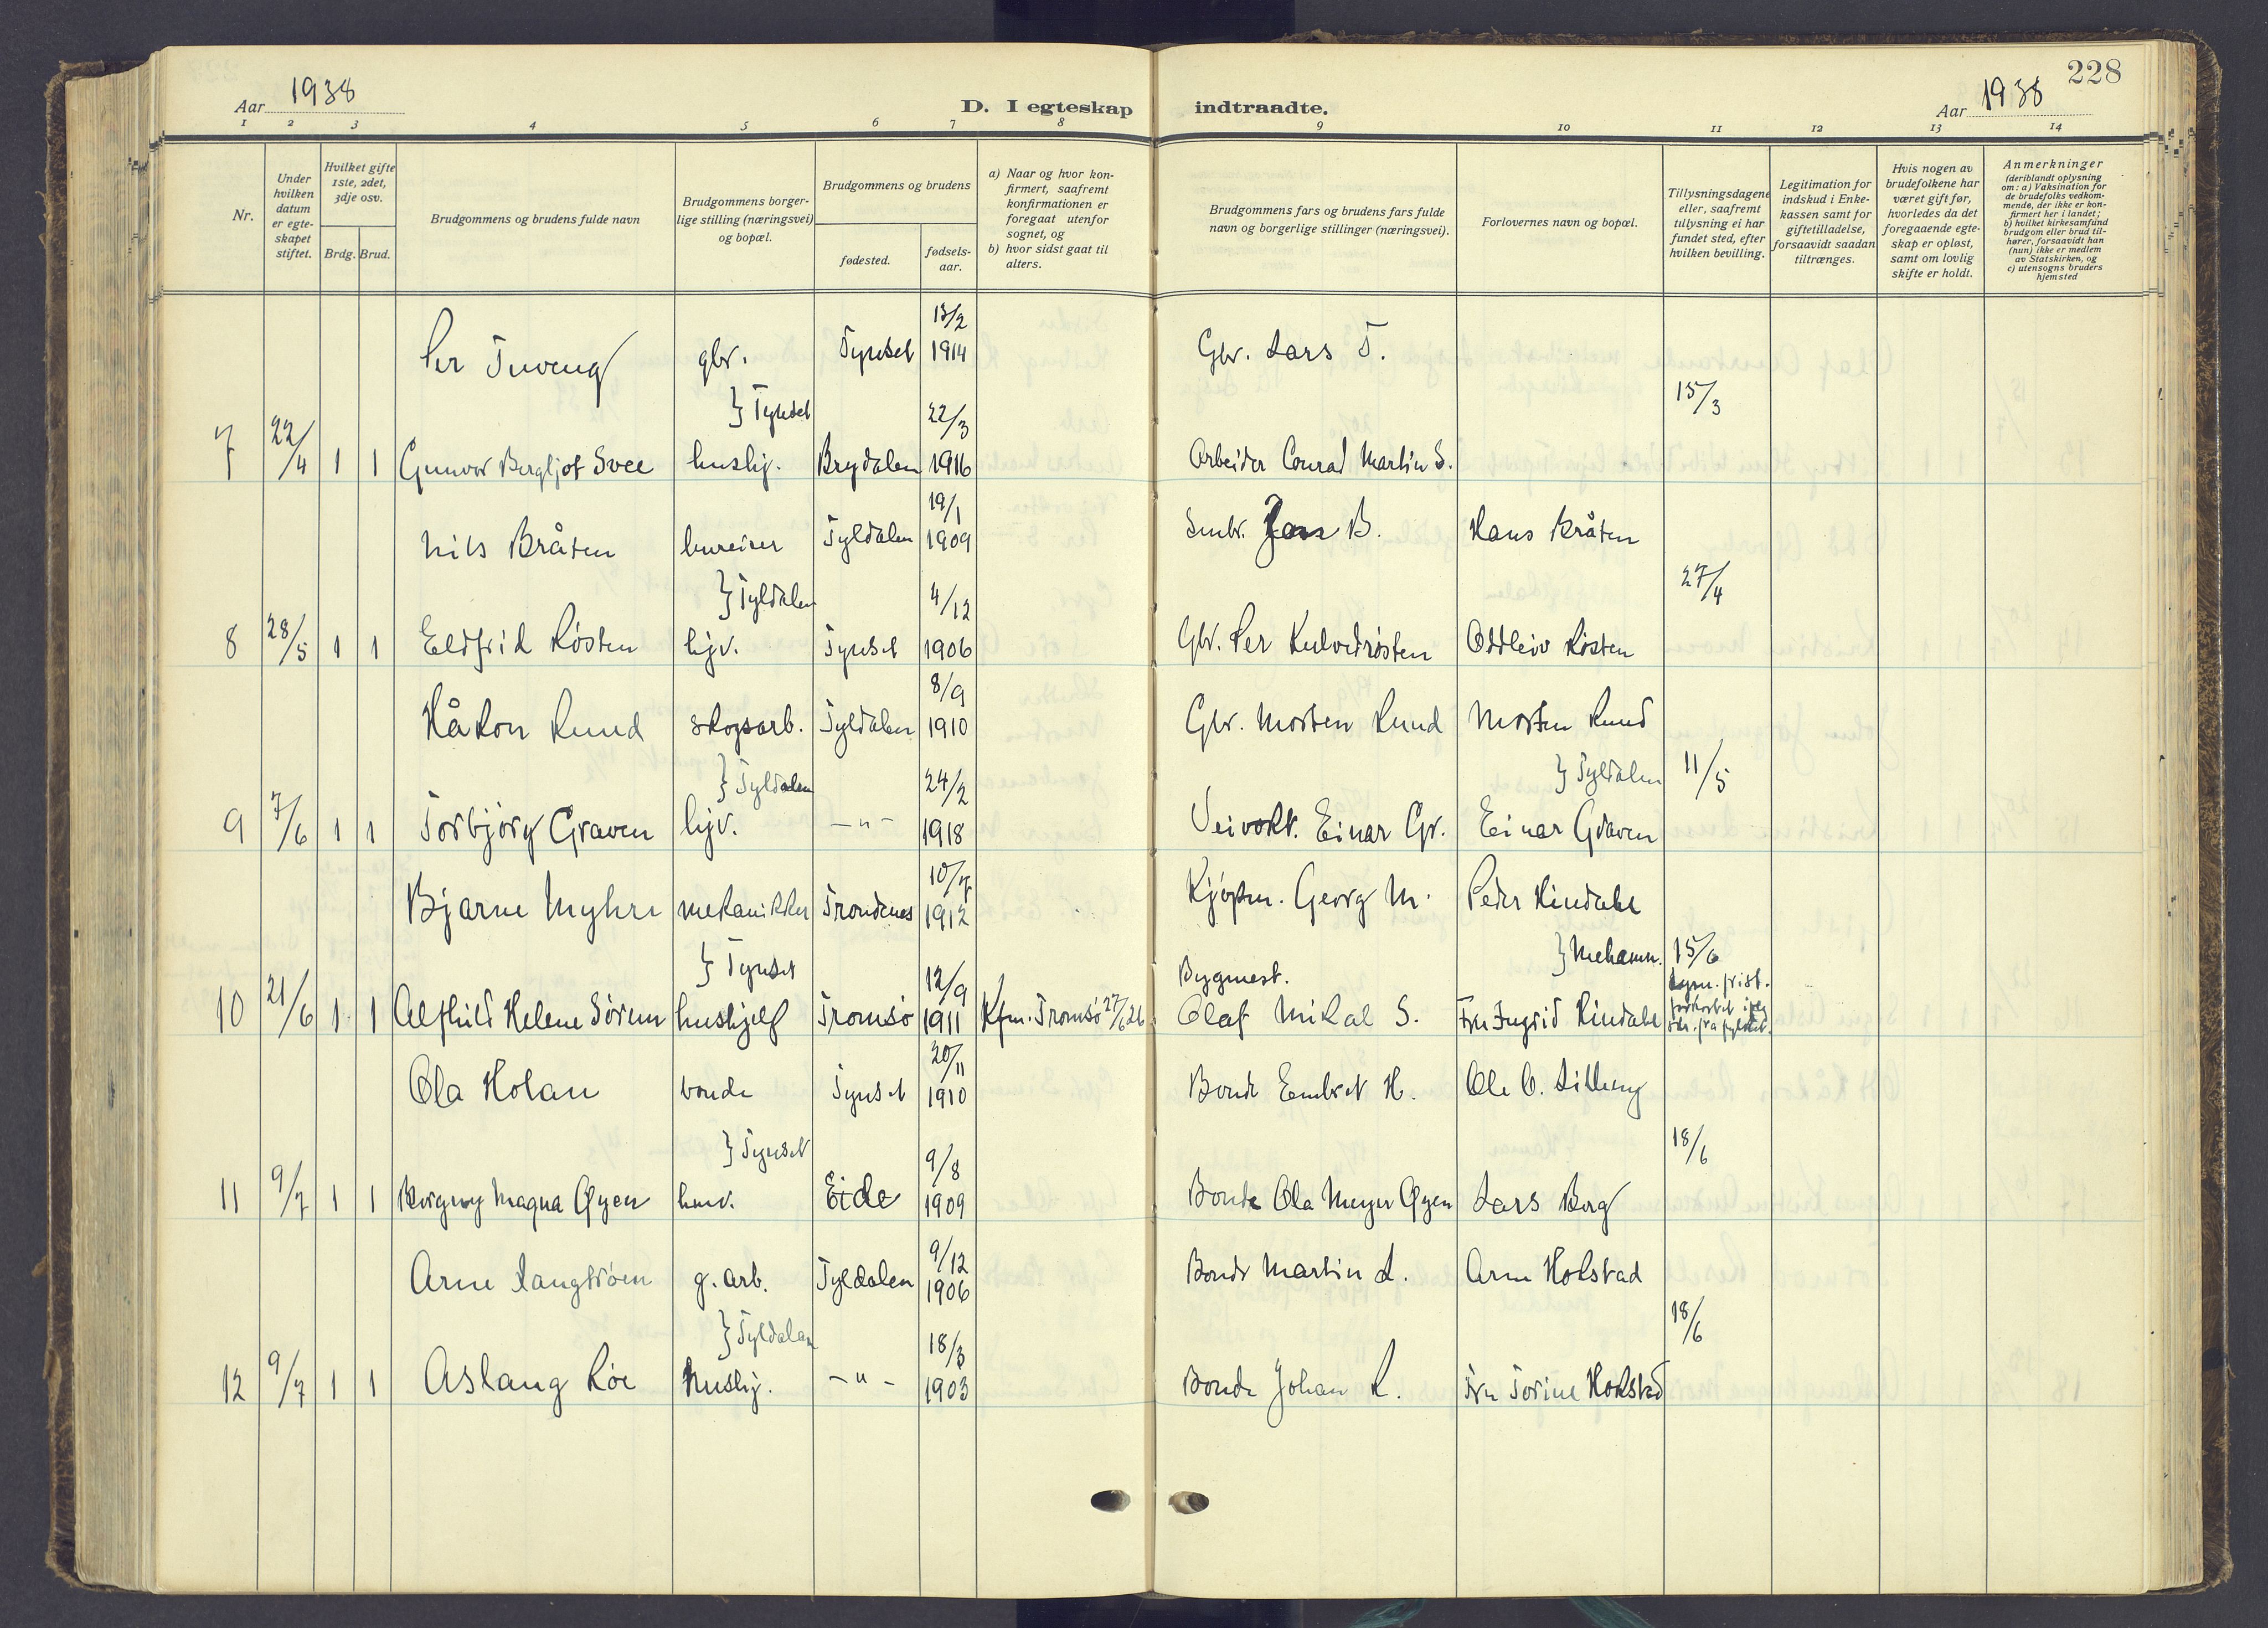 228
Aar 1938
D. I egteskap indtraadte.
Aar 1938
1 2 3 4 5 6 7 8 9 10 11 12 13 14
Nr.
Under hvilken datum er egteskapet stiftet.
Hvilket gifte 1ste, 2det, 3dje osv.
Brdg. Brud.
Brudgommens og brudens fulde navn
Brudgommens borgerlige stilling (næringsvei) og bopæl.
Brudgommens og brudens
fødested.
fødselsaar.
a) Naar og hvor konfirmert, saafremt konfirmationen er foregaat utenfor sognet, og
b) hvor sidst gaat til alters.
Brudgommens fars og brudens fars fulde navn og borgerlige stillinger (næringsvei).
Forlovernes navn og bopæl.
Tillysningsdagene eller, saafremt tillysning ei har fundet sted, efter hvilken bevilling.
Legitimation for indskud i Enkekassen samt for giftetilladelse, forsaavidt saadan tiltrænges.
Hvis nogen av brudefolkene har været gift før, hvorledes da det foregaaende egteskap er opløst, samt om lovlig skifte er holdt.
Anmerkninger (deriblandt oplysning om: a) Vaksination for de brudefolks vedkommende, der ikke er konfirmert her i landet; b) hvilket kirkesamfund brudgom eller brud tilhører, forsaavidt han (hun) ikke er medlem av Statskirken, og c) utensogns bruders hjemsted
13/2
Per Tuveng gbr. Tynset 1914 Gbr. Lars T.
} Tynset 22/3 15/3
7 22/4 1 1 Gunvor Bergljot Svee hushj. Brydalen 1916 Arbeider Conrad Martin S.
19/1
Nils Bråten bureiser Tyldalen 1909 Smbr. B. Hans Bråten
} Tyldalen 4/12 27/4
8 28/5 1 1 Eldfrid Røsten hjv. Tynset 1906 Gbr. Per Kulvedrøsten Oddleiv Røsten
8/9
Håkon Rund skogsarb. Tyldalen 1910 Gbr. Morten Rund Morten Rund
} Tyldalen 24/2 } Tyldalen 11/5
9 7/6 1 1 Torbjørg Graven hjv. -"- 1918 Veivokt. Einar Gr. Einar Graven
10/7
Bjarne Myhre mekanikker Trondenes 1912 Kjøpm. Georg M. Peder Hindahl
} Tynset 12/9 Bygmest. } Mehamn. 15/6
10 21/6 1 1 Alfhild Helene Sørum hushjelp Tromsø 1911 Kfm. Tromsø 27/6 26 Olaf Mikal S. Fru Ingrid Hindahl
20/11
Ola Holan bonde Tynset 1910 Bonde Embret H. Ole O. Lilleng
} Tynset 9/8 18/6
11 9/7 1 1 Borgny Magna Øyen husv. Eide 1909 Bonde Ola Meyer Øyen Lars Berg
9/12
Arne Langtrøen g. arb. Tyldalen 1906 Bonde Martin L. Arne Hokstad
} Tyldalen 18/3 18/6
12 9/7 1 1 Aslaug Røe hushj. -"- 1903 Bonde Johan R. Fru Torine Hokstad